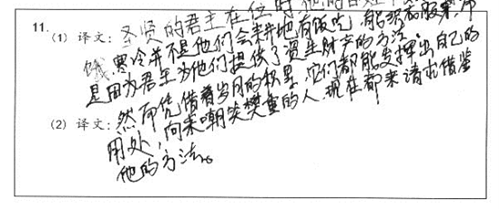 11.
(1) 译文：圣贤的君主在位时他的百姓
饿寒冷并不是他们会耕地有饭吃，能织布有衣
是因为君主为他们提供了资生财产的方法
(2) 译文：然而凭借着岁月的积累，它们都能发挥出自己的
用处，向来嘲笑樊重的人，现在都来请求借鉴
他的方法。